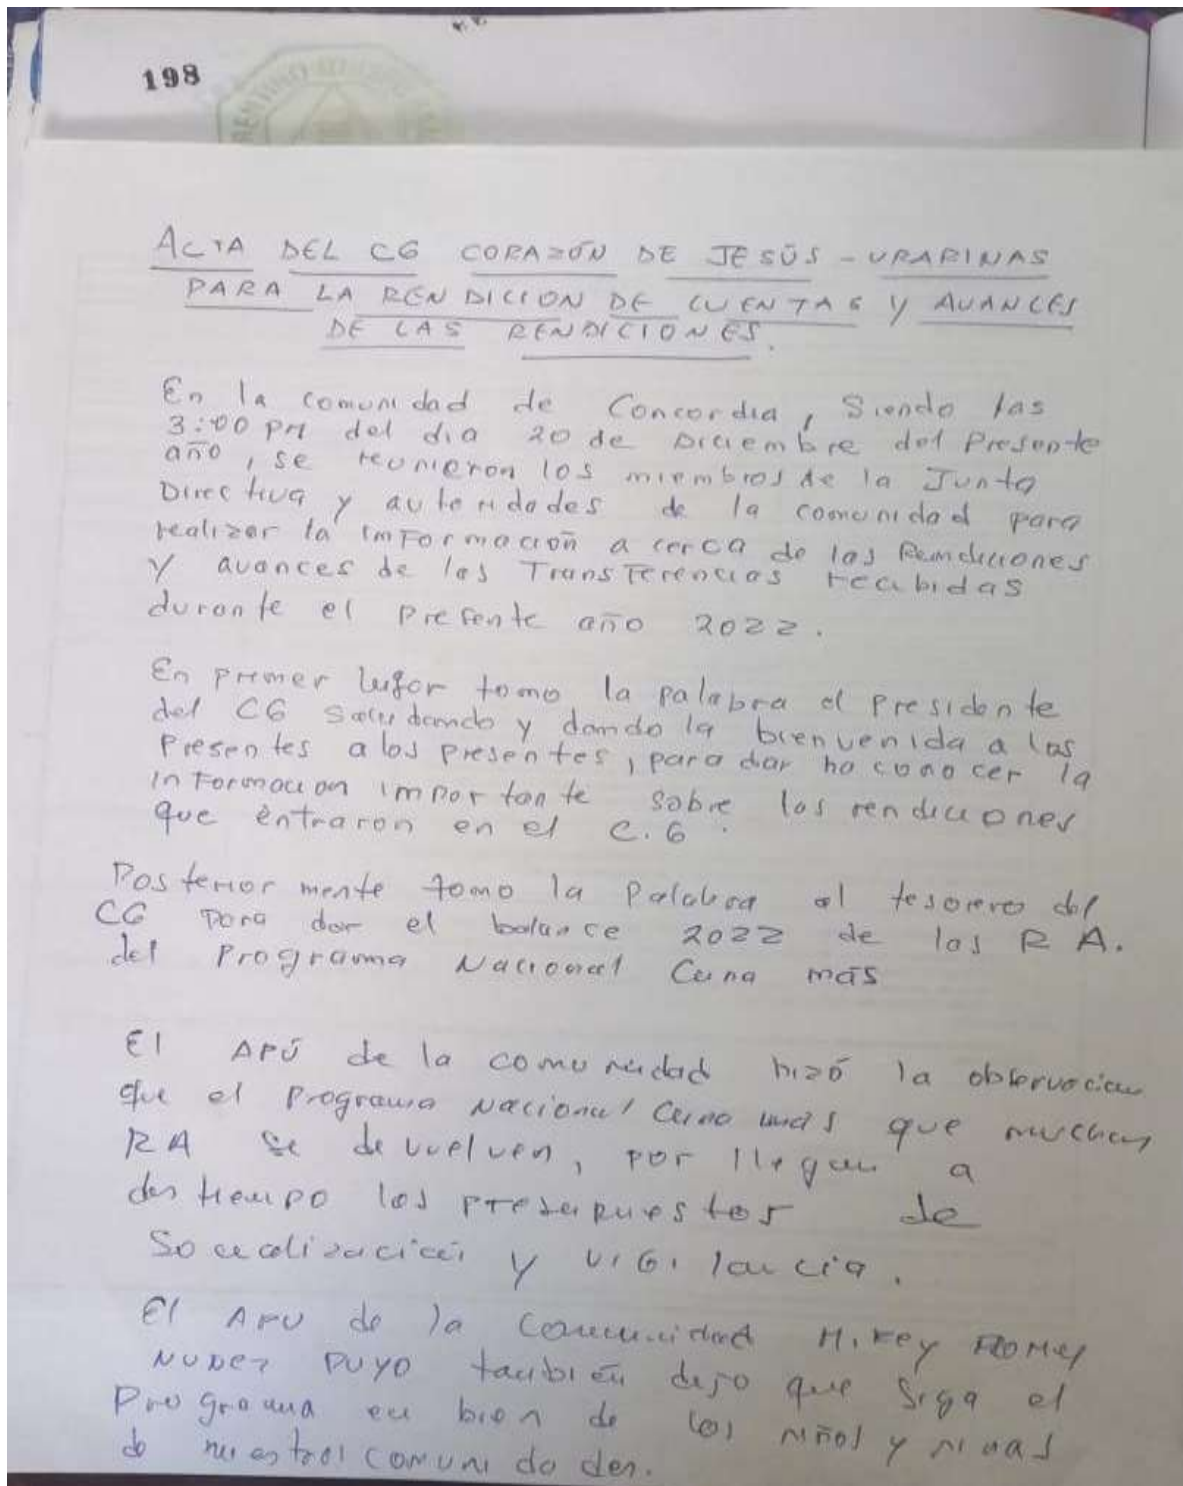 198
ACTA DEL CG CORAZÓN DE JESÚS - URARINAS
PARA LA RENDICION DE CUENTAS Y AVANCES
DE LAS RENDICIONES.
En la comunidad de Concordia, Siendo las
3:00 PM del dia 20 de Diciembre del Presente
año, se reunieron los miembros de la Junta
Directiva y autoridades de la comunidad para
realizar la información a cerca de las Rendiciones
y avances de las Transferencias recibidas
durante el Presente año 2022.
En primer lugar tomo la palabra el Presidente
del CG Saludando y dando la bienvenida a los
Presentes a los presentes, para dar ha conocer la
informacion importante sobre las rendiciones
que entraron en el C.G.
Posteriormente tomo la Palabra el tesorero del
CG Para dar el balance 2022 de las R A.
del Programa Nacional Cuna más
El APÚ de la comunidad hizó la observacion
que el Programa Nacional Cuna mas que muchas
RA se devuelven, por llegan a
destiempo los presupuestos de
Socializacion y vigilancia.
El APU de la comunidad
NUÑEZ PUYO también dijo que siga el
Programa en bien de los niños y niñas
de nuestras comunidades.